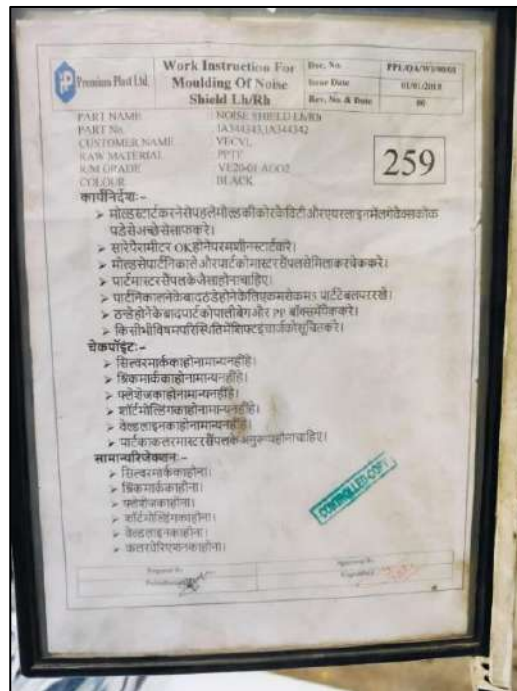 Premium Plast Ltd.
Work Instruction For
Moulding Of Noise
Shield Lh/Rh
Doc. No
PPL/QA/WI/00/01
Issue Date
01/01/2018
Rev. No. & Date
00
PART NAME : NOISE SHIELD Lh/Rh
PART No. : IA344343,IA344342
CUSTOMER NAME : VECVL
RAW MATERIAL : PPTF
R/M GRADE : VE20-01 AGO2
COLOUR : BLACK
259
कार्यनिर्देशः-
➤ मोल्डस्टार्टकरनेसेपहलेमोल्डकीकोरकेविटीऔरएयरलाइनमेंलगेवेक्सकोक
पडेसेअच्छेसेसाफकरे।
➤ सारेपैरामीटर OKहोनेपरमशीनस्टार्टकरे।
➤ मोल्डसेपार्टनिकालेऔरपार्टकोमास्टरसैंपलसेमिलाकरचेककरे।
➤ पार्टमास्टरसैंपलकेजैसाहोनाचाहिए।
➤ पार्टनिकालनेकेबादठंडेहोनेकेलिएकमसेकम5 पार्टटेबलपररखें।
➤ ठन्डेहोनेकेबादपार्टकोपालीबेगऔर PP बॉक्समेंपैककरे।
➤ किसीभीविषमपरिस्थितिमेंशिफ्टइंचार्जकोसूचितकरे।
चेकपॉइंटः-
➤ सिल्वरमार्ककाहोनामान्यनहींहै।
➤ श्रिकमार्ककाहोनामान्यनहींहै।
➤ फ्लेशेजकाहोनामान्यनहींहै।
➤ शॉर्टमोल्डिंगकाहोनामान्यनहींहै।
➤ वेल्डलाइनकाहोनामान्यनहींहै।
➤ पार्टकाकलरमास्टरसैंपलकेअनुरूपहोनाचाहिए।
सामान्यरिजेक्शनः-
➤ सिल्वरमार्ककाहोना।
➤ श्रिकमार्ककाहोना।
➤ फ्लेशेजकाहोना।
➤ शॉर्टमोल्डिंगकाहोना।
➤ वेल्डलाइनकाहोना।
➤ कलरवेरिएशनकाहोना।
CONTROLLED COPY
Prepared By
Approved By